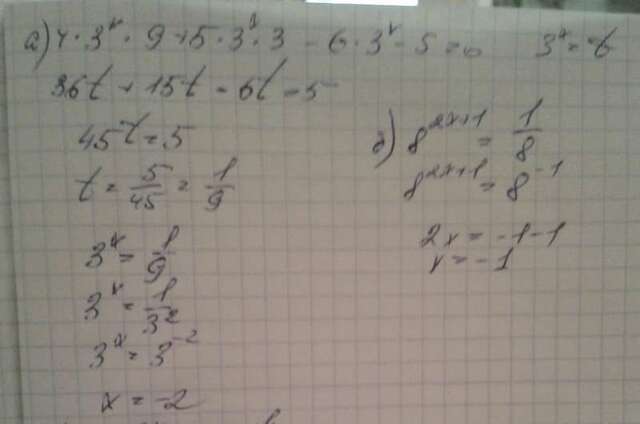 а) 4·3ˣ·9+5·3ˣ·3 - 6·3ˣ - 5 = 0
3ˣ = t
36t + 15t - 6t = 5
45t = 5
t = 5/45 = 1/9
3ˣ = 1/9
3ˣ = 1/3²
3ˣ = 3⁻²
x = -2
б) 8²ˣ⁺¹ = 1/8
8²ˣ⁺¹ = 8⁻¹
2x = -1-1
x = -1